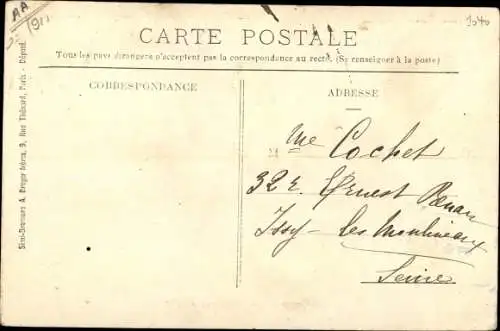 AA
1911
3040
CARTE POSTALE
Tous les pays étrangers n'acceptent pas la correspondance au recto. (Se renseigner à la poste)
CORRESPONDANCE
ADRESSE
Mme Cochet
32 r. Ernest Renan
Issy-les Moulineaux
Seine
Sémi-Bromure A. Breger frères, 9, Rue Thénard, Paris - Déposé